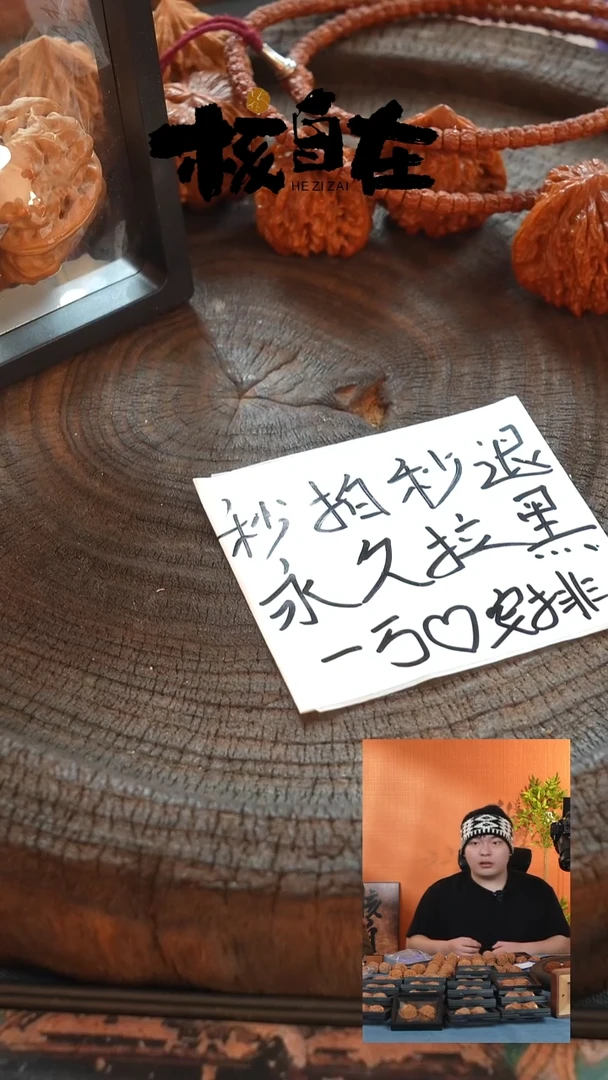 核自在
HE ZI ZAI
秒拍秒退
永久拉黑
一丂♡安排